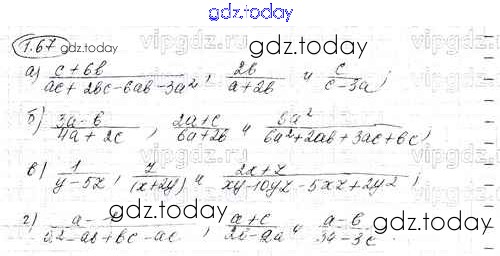 gdz.today
1.67 gdz.today vipgdz.ru gdz.today
а) (c+6b)/(ac+2bc-6ab-3a²), 2b/(a+2b) и c/(c-3a);
б) (3a-b)/(4a+2c), (2a+c)/(6a+2b) и 5a²/(6a²+2ab+3ac+bc);
в) 1/(y-5z), z/(x+2y) и (2x+z)/(xy-10yz-5xz+2y²);
г) , (a+c)/ и (a-b)/(3a-3c).
gdz.today